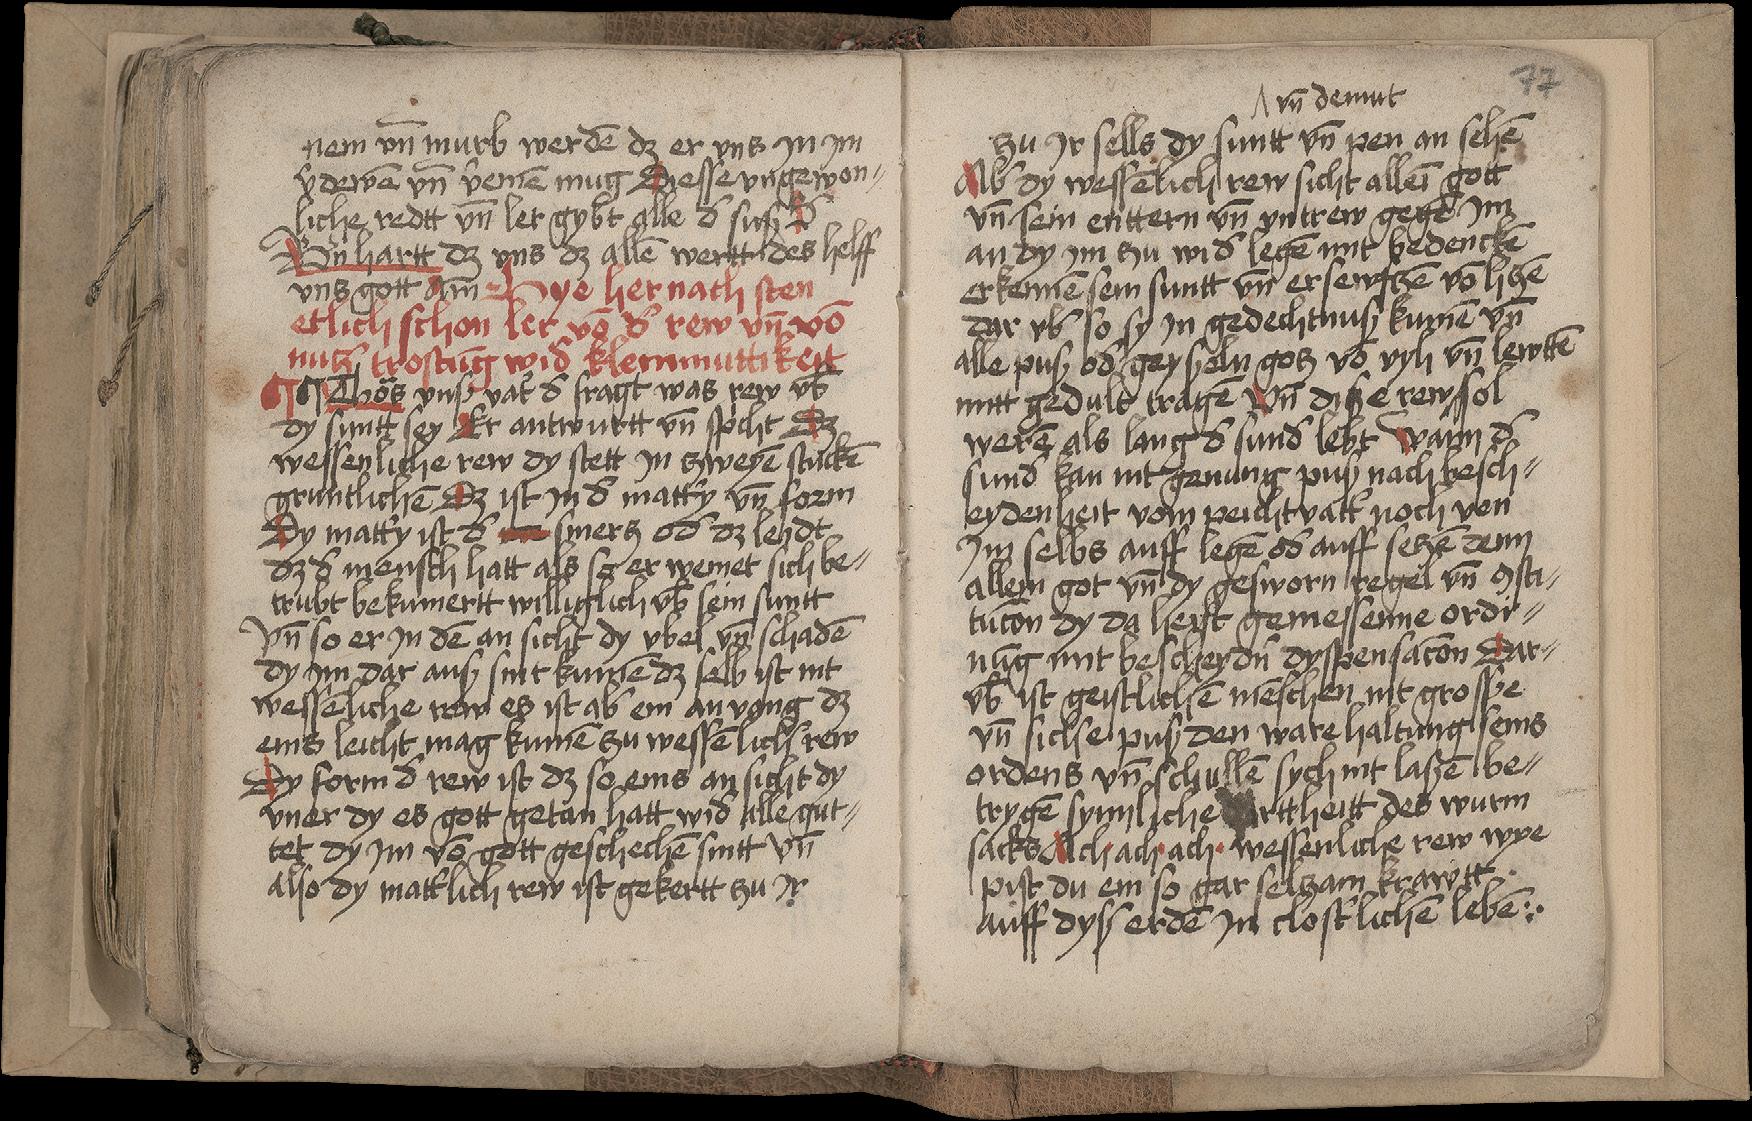 nem vn̄ murb werdē dz er vns in im
v̄dewē vn̄ v̄einē mug Diesse vngewon-
liche redtt vn̄ ler gybt alle d̄ suß
Vn̄ hartt dz vns dz allē wertt des helff
vns gott Am̄ Hye her nach sten
etlich schon ler vō d̄ rew vn̄ vō
nutz trostūg wid̄ kleinmuttikeit
¶ ¶ Thōs vnß vat̄ d̄ fragt was rew vb̄
dy suntt sey Er antwurtt vn̄ spcht Dz
wessenliche rew dy stett in zweyē stuckē
gruntlichē Dz ist in d̄ matt̄y vn̄ form
Dy matt̄y ist d̄ smerz od̄ dz leydt
dz d̄ mensch hatt als so er weinet sich be-
trubt bekumertt williglich vb̄ sein suntt
Vn̄ so er in dē an sicht dy vbel vn̄ schadē
dy im dar auß sint kumē dz selb ist nit
wessēliche rew es ist ab̄ ein anvang dz
eins leicht mag kumē zu wessēlich̄ rew
Dy form d̄ rew ist dz so eins an sicht dy
vner dy es gott getan hatt wid̄ alle gut-
tet dy im vō gott geschechē sintt vn̄
also dy matt̄lich rew ist gekertt zu ir
77
vn̄ demut
zu ir selbs dy suntt vn̄ pen an sehē
Ab̄ dy wessēlich rew sicht allein gott
vn̄ sein enttern vn̄ vntrew gegē im
an dy im zu wid̄ legē mit bedenckē
erkennē sein suntt vn̄ ersewftzē vō hitzē
dar vb̄ so sy in gedechtnuß kumē vn̄
alle puß od̄ geyßeln gotz vō vyh vn̄ lewttē
mitt gedult tragē Vn̄ diße rew sol
werē als lang d̄ sund̄ lebt Wann d̄
sund̄ kan nit genung puß nach besch-
eydenheit vom peichtvatt̄ noch von
im selbs auff legē od̄ auff setzē denn
allein got vn̄ dy gesworn regel vn̄ 9sti-
tucōn dy da heist gemessenne ordi-
nūg mit bescheydn̄ dyspensacōn Dar-
vb̄ ist geistlichē mēschen nit grosse
vn̄ sich̄e puß den ware haltung seins
ordens vn̄ schullē sych nit laßē be-
trygē synnliche rttheitt des wurm
sacks Ach ach ach wessenliche rew wye
pist du ein so gar selzam krawtt
auff dyß erdē in clost̄lichē lebē